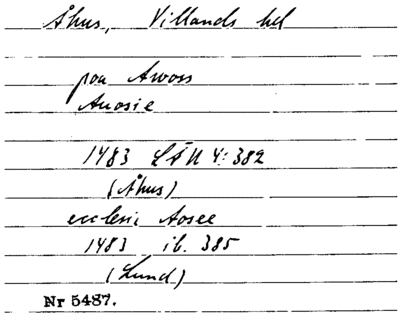 Åhus, Villands hd
paa Awoss
Auosie
1483 LÄU 4:382
(Åhus)
ecclesie Aosee
1483 ib. 385
(Lund)
Nr 5487.